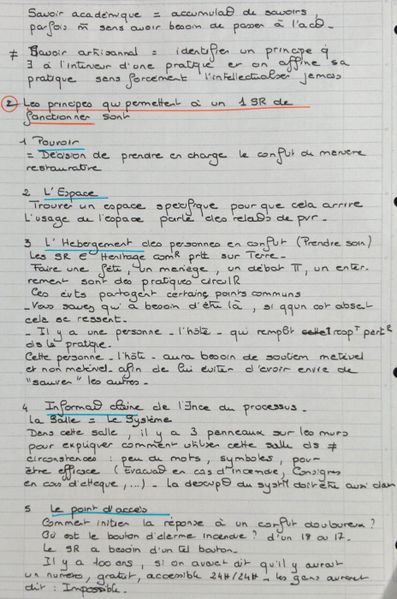 Savoir académique = accumulaᵒ de savoirs,
parfois m̄ sans avoir besoin de passer à l'acᵒ.
≠ Savoir artisanal = identifier un principe q̄
∃ à l'intérieur d'une pratique et on affine sa
pratique sans forcément l'intellectualiser jamais
2 Les principes qui permettent à un 1 SR de
fonctionner sont
1 Pouvoir
= Décision de prendre en charge le conflit de manière
restaurative
2 L'Espace
Trouver un espace spécifique pour que cela arrive
L'usage de l'espace parle des relaᵒs de pvr.
3 L'Hébergement des personnes en conflit (Prendre soin)
Les SR ∈ Héritage comᴿ prtt sur Terre.
Faire une fête, un mariage, un débat π, un enter.
rement sont des pratiques circulᴿ
Ces évts partagent certains points communs
_ Vous savez qui a besoin d'être là, si qqun est absent
cela se ressent.
_ Il y a une personne _ l'hôte _ qui remplit
ds le pratique.
Cette personne _ l'hôte _ aura besoin de soutien matériel
et non matériel afin de lui éviter d'avoir envie de
"sauver" les autres.
4 Informaᵒ claire de l' du processus.
La Salle = Le Système
Dans cette salle, il y a 3 panneaux sur les murs
pour expliquer comment utiliser cette salle ds ≠
circonstances : peu de mots, symboles, pour
être efficace (Évacuaᵒ en cas d'incendie, Consignes
en cas d'attaque, ...) _ la descripᵒ du systᵐ doit être aussi claire
5 Le point d'accès
Comment initier la réponse à un conflit douloureux ?
Où est le bouton d'alarme incendie ? d'un 18 ou 17.
Le SR a besoin d'un tel bouton.
Il y a 100 ans, si on avait dit qu'il y aurait
un numéro, gratuit, accessible 24H/24H _ les gens auraient
dit : Impossible.